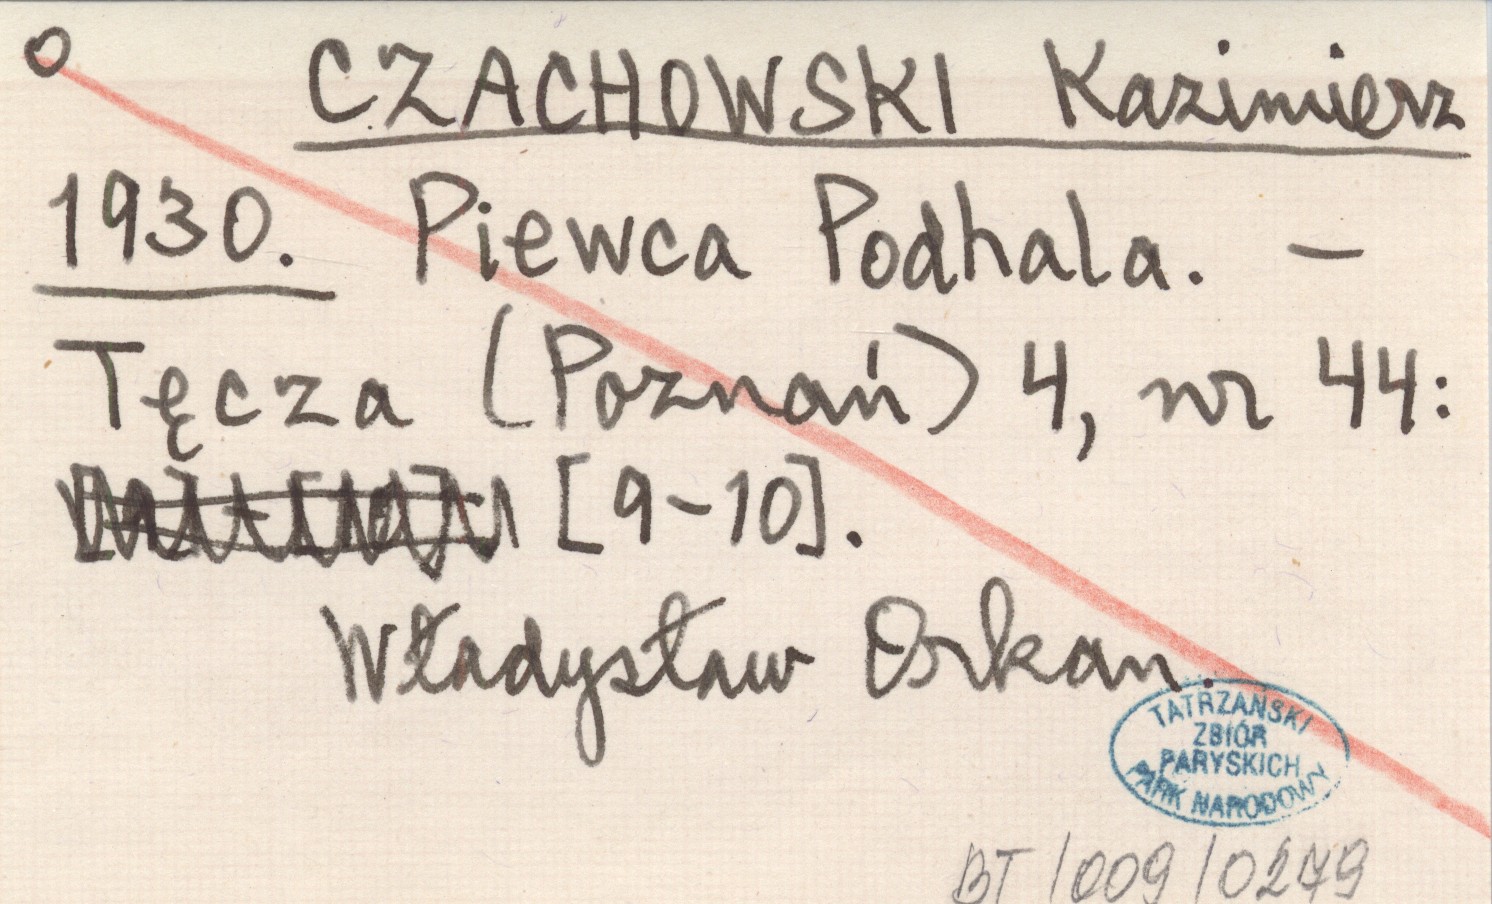 CZACHOWSKI Kazimierz
1930. Piewca Podhala. –
Tęcza (Poznań) 4, nr 44:
[9-10].
Władysław Orkan.
TATRZAŃSKI
ZBIÓR
PARYSKICH
PARK NARODOWY
BT/009/0279